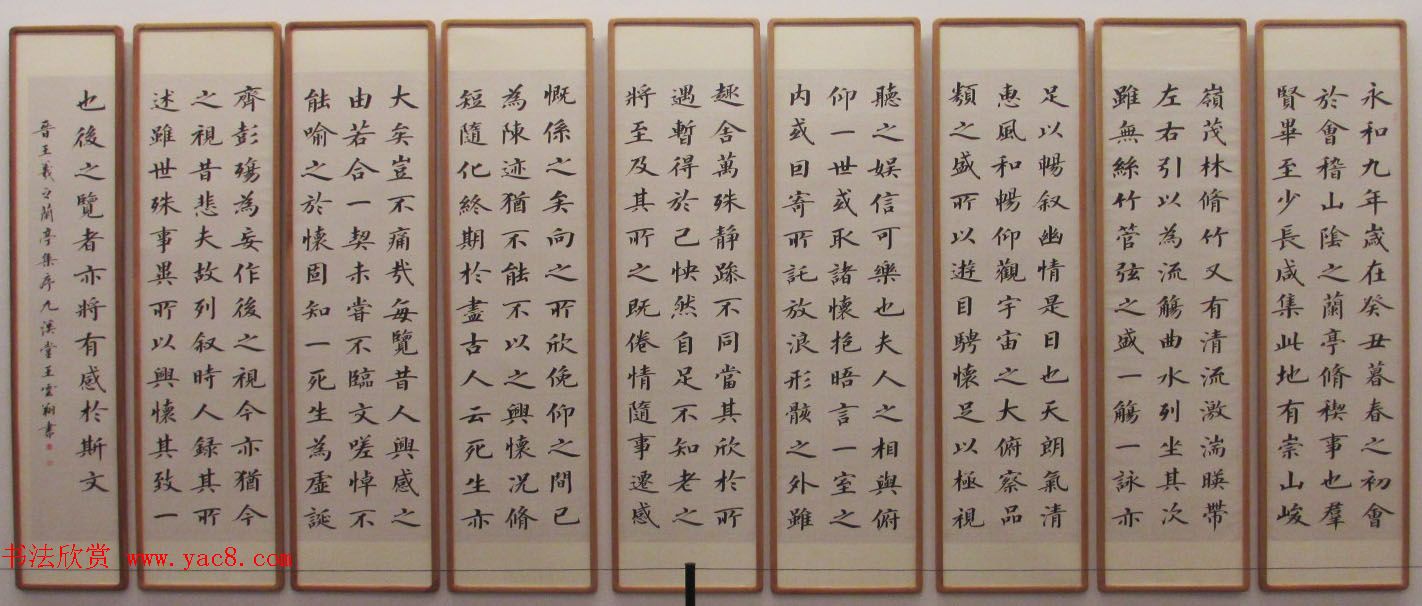 永和九年歲在癸丑暮春之初會
於會稽山陰之蘭亭脩禊事也羣
賢畢至少長咸集此地有崇山峻
嶺茂林脩竹又有清流激湍暎帶
左右引以為流觴曲水列坐其次
雖無絲竹管弦之盛一觴一詠亦
足以暢叙幽情是日也天朗氣清
惠風和暢仰觀宇宙之大俯察品
類之盛所以遊目騁懷足以極視
聽之娛信可樂也夫人之相與俯
仰一世或取諸懷抱晤言一室之
内或因寄所託放浪形骸之外雖
趣舍萬殊静躁不同當其欣於所
遇暫得於己怏然自足不知老之
將至及其所之既倦情隨事遷感
慨係之矣向之所欣俛仰之間已
為陳迹猶不能不以之興懷况脩
短隨化終期於盡古人云死生亦
大矣豈不痛哉每覽昔人興感之
由若合一契未嘗不臨文嗟悼不
能喻之於懷固知一死生為虛誕
齊彭殤為妄作後之視今亦猶今
之視昔悲夫故列叙時人録其所
述雖世殊事異所以興懷其致一
也後之覽者亦將有感於斯文
晉王羲之蘭亭集序九溪堂王雲翔書
书法欣赏 www.yac8.com